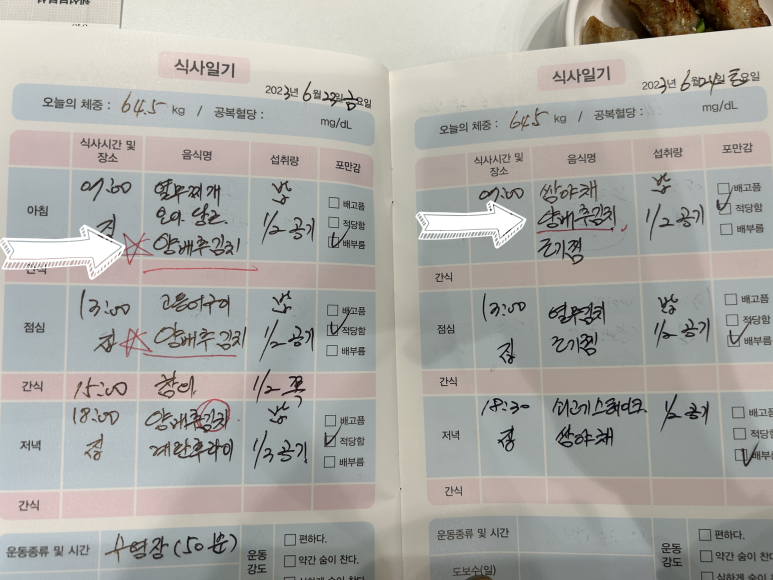 식사일기
2023년 6월 23일 금요일
오늘의 체중 : 64.5 kg / 공복혈당 : mg/dL
식사시간 및 장소 음식명 섭취량 포만감
아침 07:00 열무찌개 밥 배고픔
집 1/2 공기 적당함
양배추김치 배부름
간식
점심 13:00 고등어구이 밥 배고픔
집 양배추김치 1/2 공기 적당함
배부름
간식 15:00 참외 1/2 쪽
저녁 18:00 양배추김치 밥 배고픔
집 계란후라이 1/3 공기 적당함
배부름
간식
운동종류 및 시간 수영장 (50분) 운동강도 편하다.
약간 숨이 찬다.
식사일기
2023년 6월 24일 토요일
오늘의 체중 : 64.5 kg / 공복혈당 : mg/dL
식사시간 및 장소 음식명 섭취량 포만감
07:00 쌈야채 밥 배고픔
양배추김치 1/2 공기 적당함
배부름
간식
점심 13:00 열무김치 밥 배고픔
집 1/2 공기 적당함
배부름
간식
저녁 18:30 쇠고기스테이크 1/2 공기 배고픔
쌈야채 적당함
배부름
간식
운동종류 및 시간 운동강도 편하다.
약간 숨이 찬다.
도보수(일) 심하게 숨이 찬다